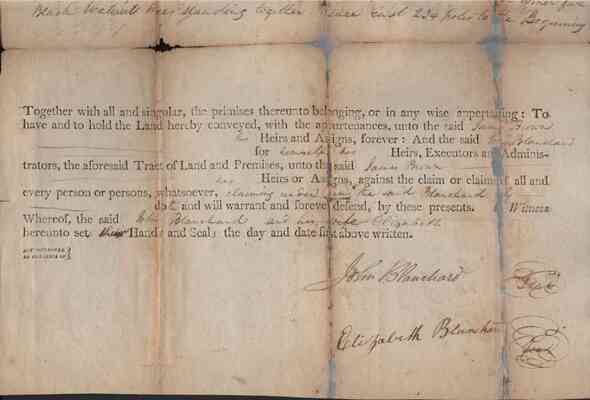 Black Walnut trees standing together thence East 234 poles to the Beginning
Together with all and singular, the premises thereunto belonging, or in any wise appertaining: To
have and to hold the Land hereby conveyed, with the appurtenances, unto the said James Brown
his Heirs and Assigns, forever: And the said Blanchard
for himself his Heirs, Executors and Adminis-
trators, the aforesaid Tract of Land and Premises, unto the said James Brown
his Heirs or Assigns, against the claim or claims of all and
every person or persons, whatsoever, claiming under him the said Blanchard
doth and will warrant and forever defend, by these presents. In Witness
Whereof, the said John Blanchard and his wife Elizabeth
hereunto set their Hands and Seals the day and date first above written.
John Blanchard Seal
Elizabeth Blanchard Seal